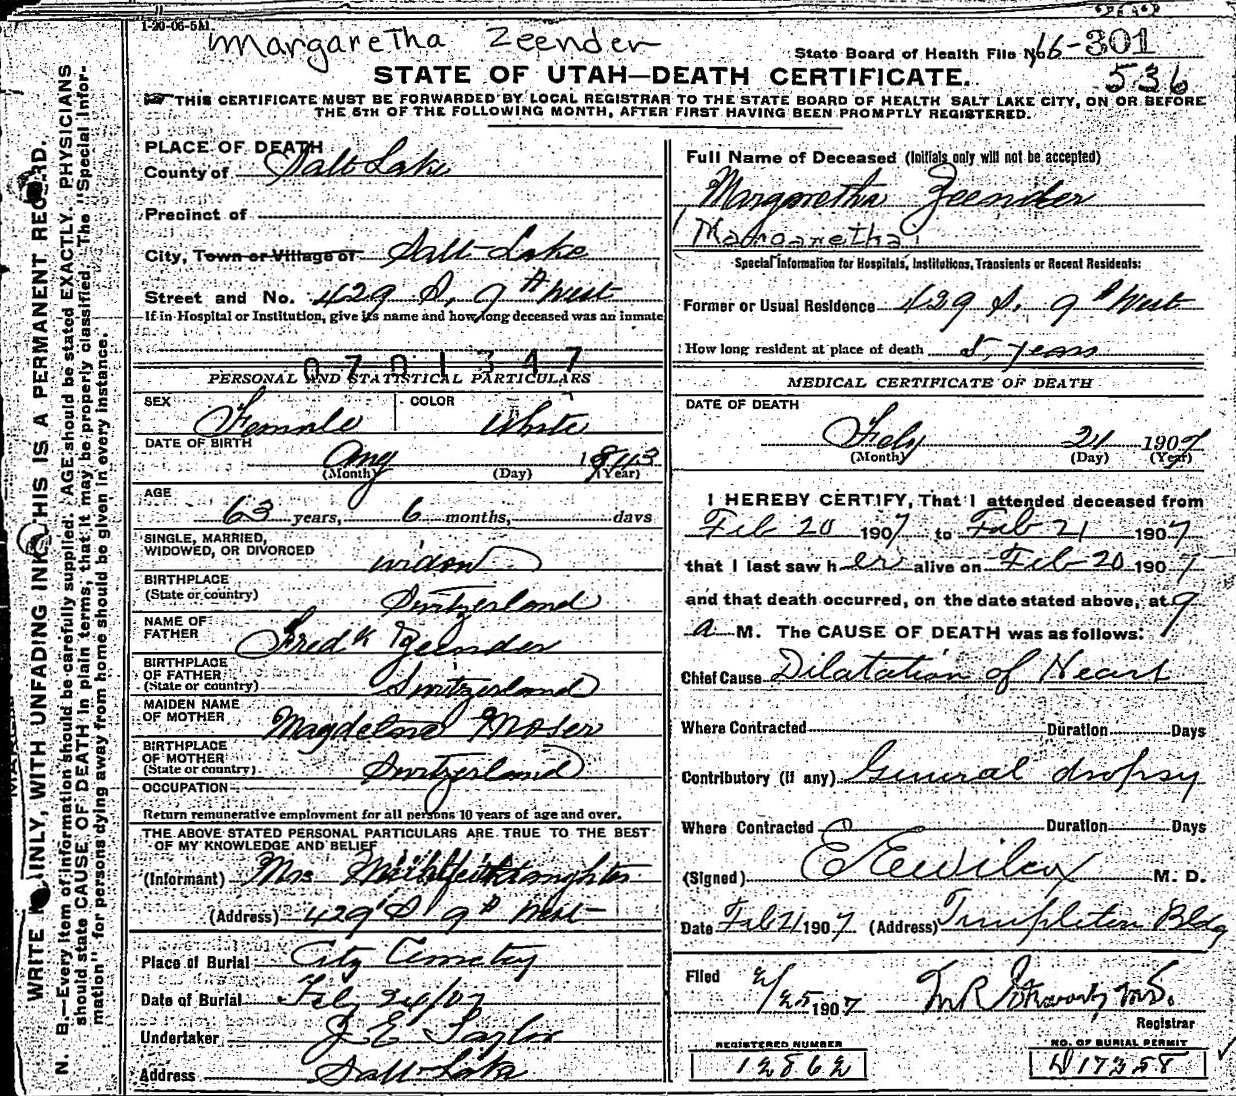 1-20-06-5M
Margaretha Zeender
State Board of Health File No. 16-301
536
STATE OF UTAH—DEATH CERTIFICATE.
THIS CERTIFICATE MUST BE FORWARDED BY LOCAL REGISTRAR TO THE STATE BOARD OF HEALTH SALT LAKE CITY, ON OR BEFORE
THE 5TH OF THE FOLLOWING MONTH, AFTER FIRST HAVING BEEN PROMPTLY REGISTERED.
PLACE OF DEATH
County of Salt Lake
Precinct of
City, Town or Village of Salt Lake
Street and No. 429 S. 9th West
If in Hospital or Institution, give its name and how long deceased was an inmate
0701347
PERSONAL AND STATISTICAL PARTICULARS
SEX Female COLOR White
DATE OF BIRTH
Aug 1843
(Month) (Day) (Year)
AGE
63 years, 6 months, days
SINGLE, MARRIED,
WIDOWED, OR DIVORCED widow
BIRTHPLACE
(State or country) Switzerland
NAME OF
FATHER Fredk Zeender
BIRTHPLACE
OF FATHER
(State or country) Switzerland
MAIDEN NAME
OF MOTHER Magdelena Moser
BIRTHPLACE
OF MOTHER
(State or country) Switzerland
OCCUPATION
Return remunerative employment for all persons 10 years of age and over.
THE ABOVE STATED PERSONAL PARTICULARS ARE TRUE TO THE BEST
OF MY KNOWLEDGE AND BELIEF
(Informant) Mrs daughter
(Address) 429 S 9th West
Place of Burial City Cemetery
Date of Burial Feby 24/07
Undertaker J E Taylor
Address Salt Lake
Full Name of Deceased (Initials only will not be accepted)
Margaretha Zeender
(Margaretha)
Special Information for Hospitals, Institutions, Transients or Recent Residents:
Former or Usual Residence 429 S. 9th West
How long resident at place of death 5 years
MEDICAL CERTIFICATE OF DEATH
DATE OF DEATH
Feby 21 1907
(Month) (Day) (Year)
I HEREBY CERTIFY, That I attended deceased from
Feb 20 1907 to Feb 21 1907
that I last saw her alive on Feb 20 1907
and that death occurred, on the date stated above, at 9
a M. The CAUSE OF DEATH was as follows:
Chief Cause Dilatation of Heart
Where Contracted Duration Days
Contributory (if any) General dropsy
Where Contracted Duration Days
(Signed) E E Wilcox M. D.
Date Feb 21 1907 (Address) Templeton Bldg
Filed 2/25 1907
Registrar
REGISTERED NUMBER
12862
NO. OF BURIAL PERMIT
D 17358
WRITE PLAINLY, WITH UNFADING INK—THIS IS A PERMANENT RECORD.
N. B.—Every item of information should be carefully supplied. AGE should be stated EXACTLY. PHYSICIANS
should state CAUSE OF DEATH in plain terms, that it may be properly classified. The "Special Infor-
mation" for persons dying away from home should be given in every instance.